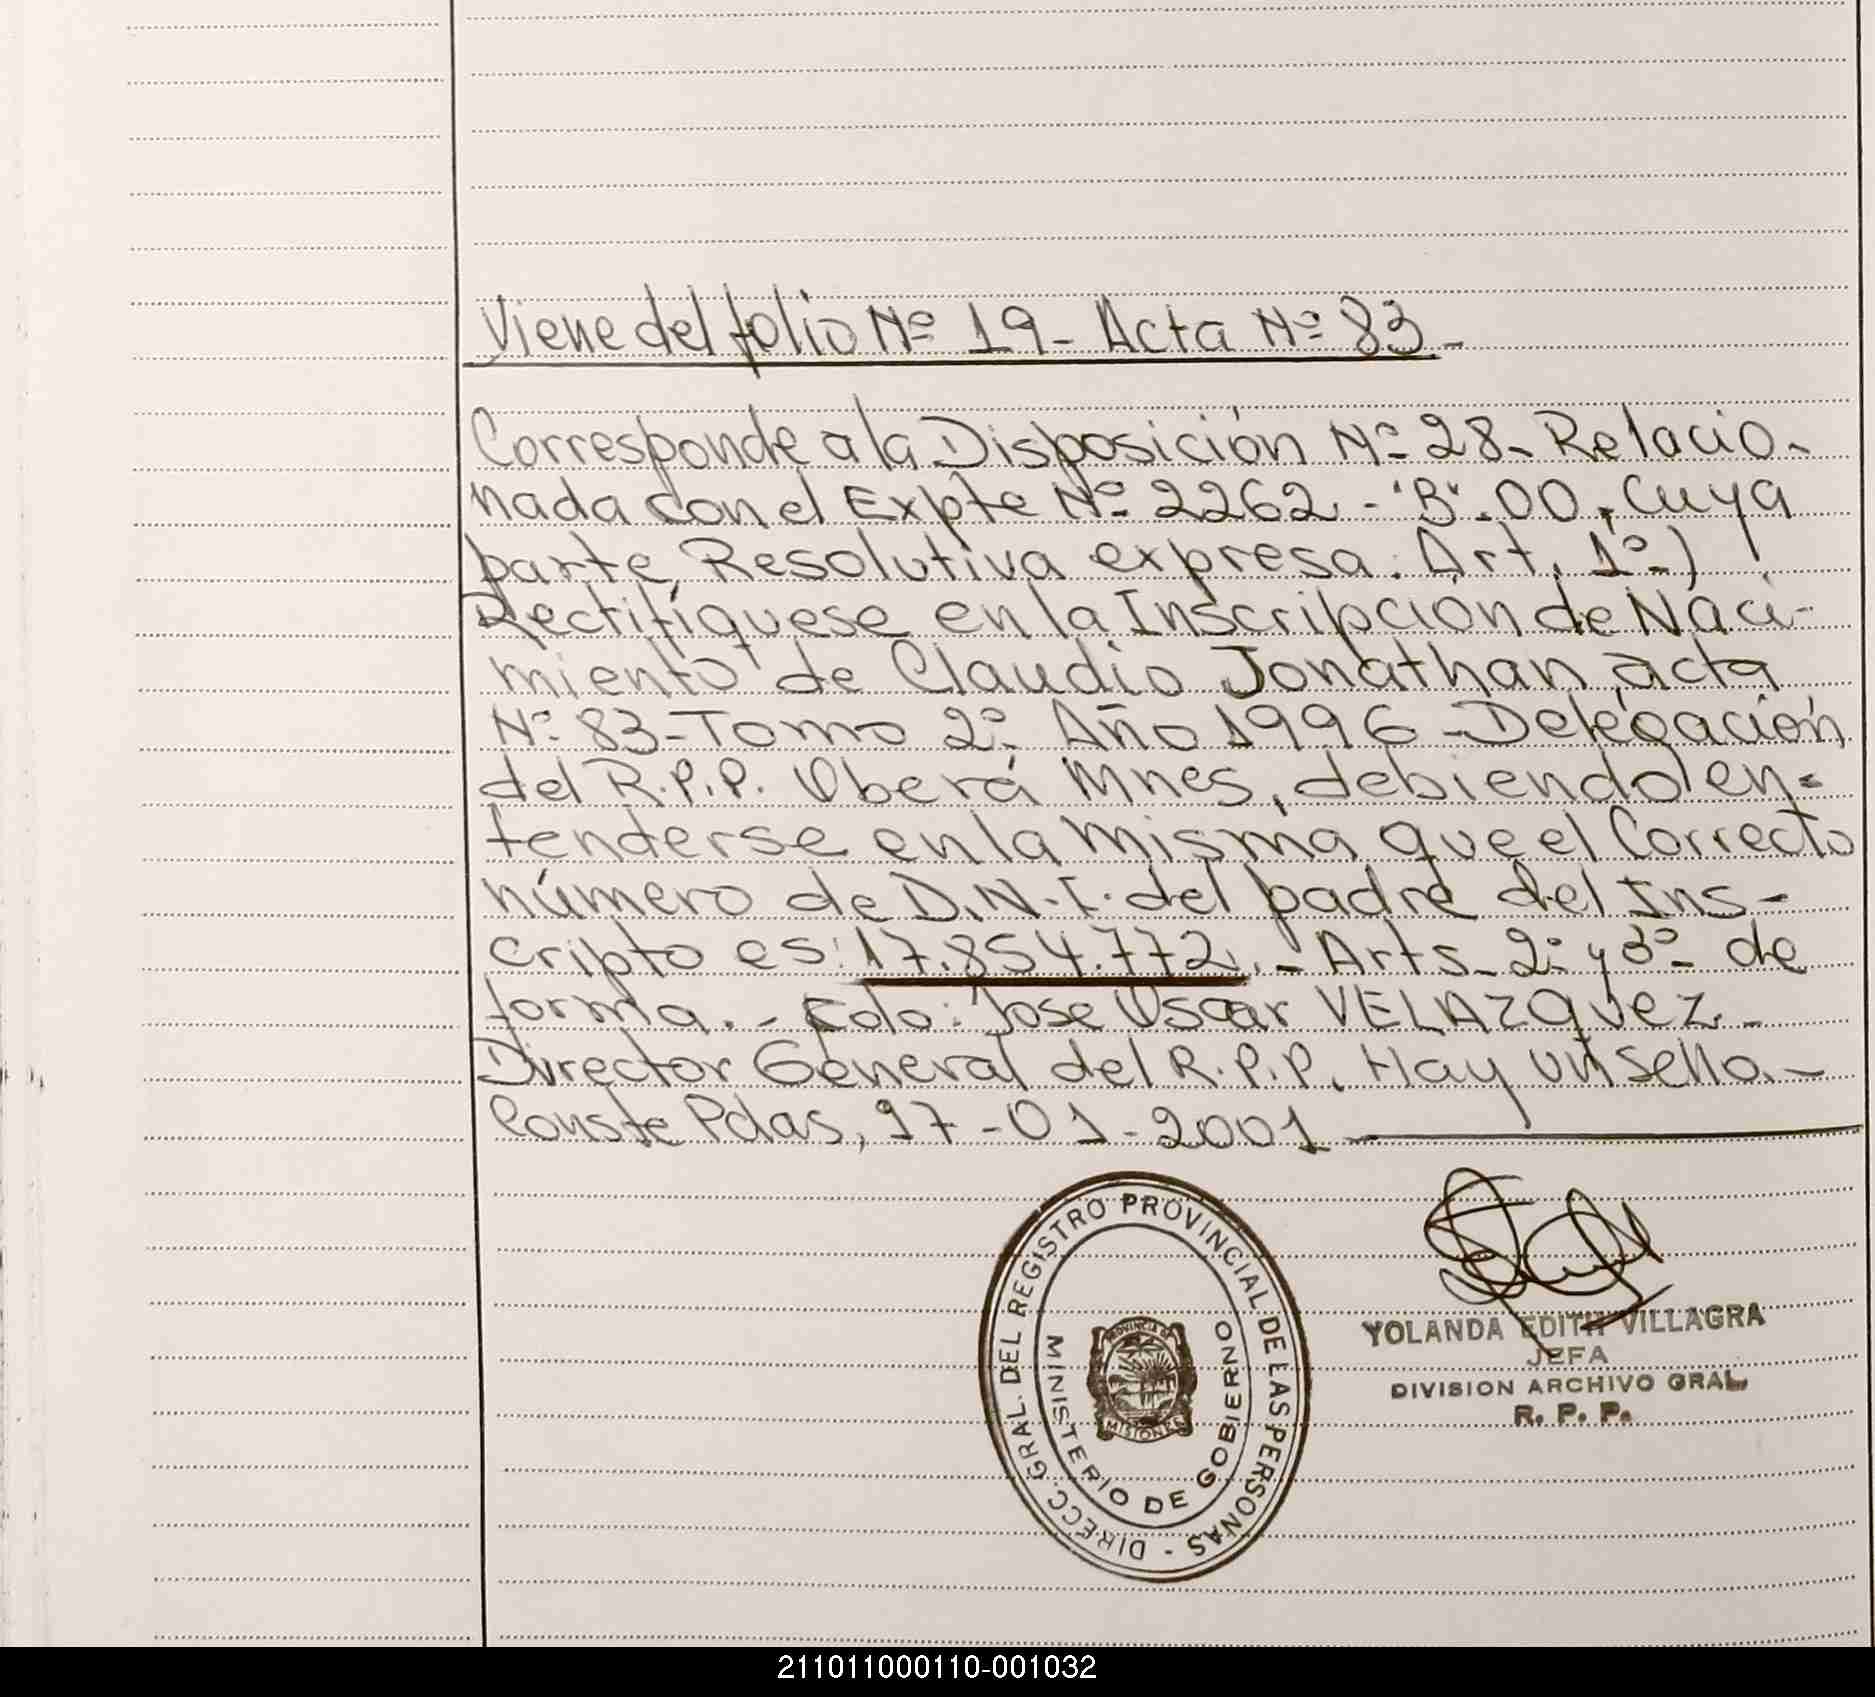 Viene del folio Nº 19 - Acta Nº 83 -
Corresponde a la Disposición Nº 28 - Relacio-
nada con el Expte Nº 2262 - "B". 00, Cuya
parte Resolutiva expresa: Art. 1º-)
Rectifíquese en la Inscripción de Naci-
miento de Claudio Jonathan, acta
Nº 83 - Tomo 2º Año 1996 - Delegación
del R.P.P. Oberá Mnes, debiendo en-
tenderse en la misma que el Correcto
número de D.N.I. del padre del Ins-
cripto es: 17.854.772. - Arts. 2º y 3º - de
forma. - Fdo: Jose Oscar VELAZquez -
Director General del R.P.P. Hay un sello. -
Conste Pdas, 17-01-2001
DIRECC. GRAL. DEL REGISTRO PROVINCIAL DE LAS PERSONAS -
MINISTERIO DE GOBIERNO
PROVINCIA DE
MISIONES
YOLANDA EDITH VILLAGRA
JEFA
DIVISION ARCHIVO GRAL.
R. P. P.
211011000110-001032